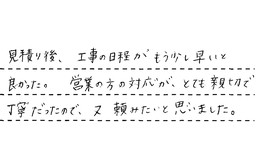 見積り後、工事の日程がもう少し早いと
良かった。 営業の方の対応が、とても親切で
丁寧だったので、又頼みたいと思いました。